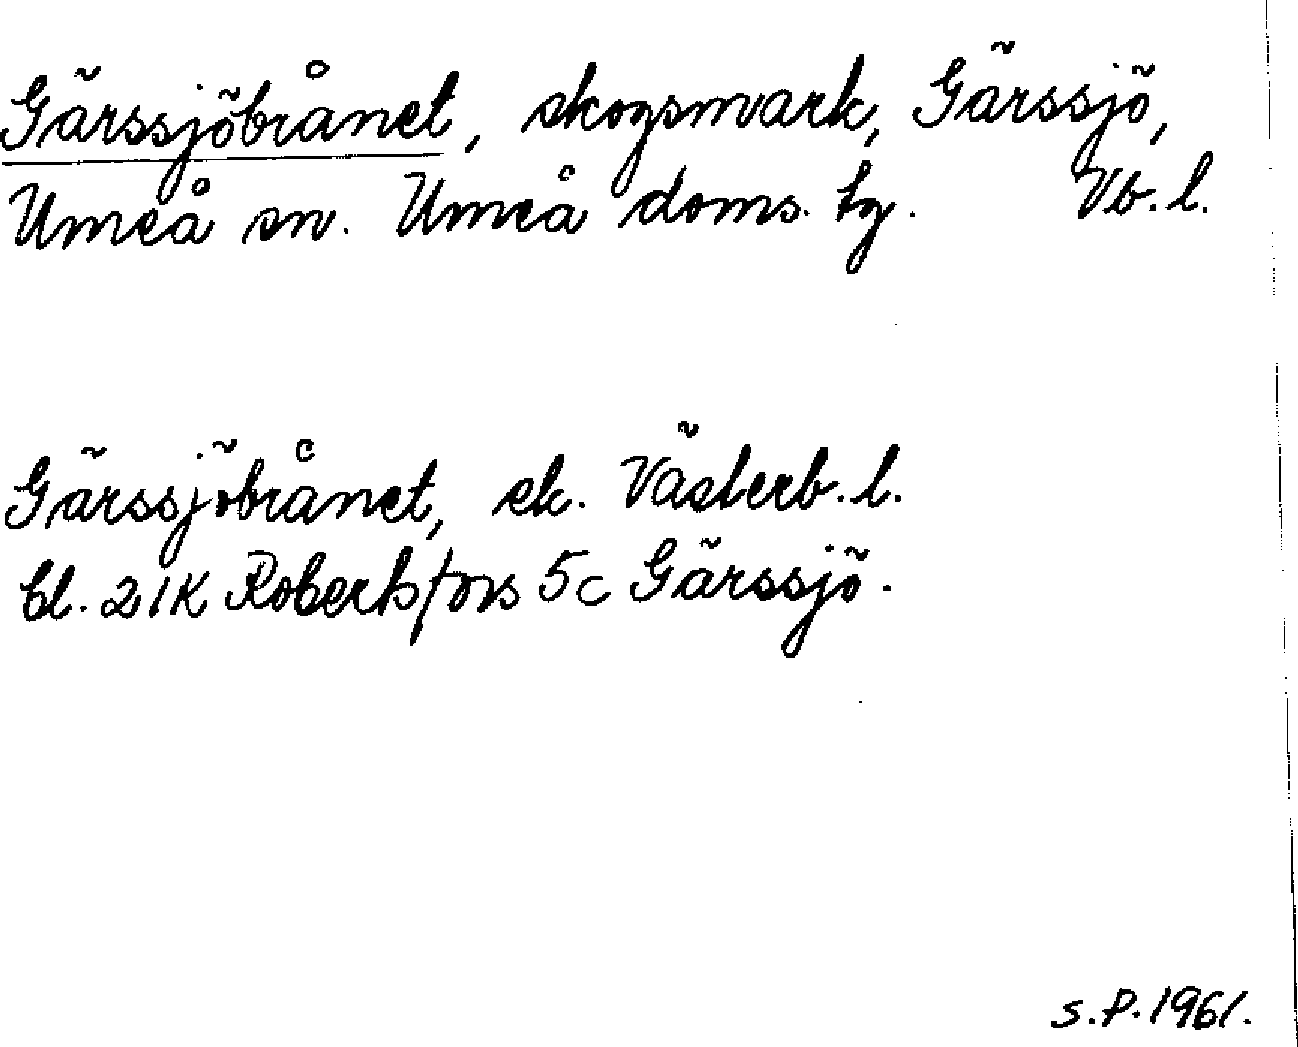 Gärssjöbrånet, skogsmark, Gärssjö,
Umeå sn. Umeå doms. tg. Vb. l.
Gärssjöbrånet, sk. Västerb. l.
bl. 21K Robertsfors 5c Gärssjö.
S. P. 1961.